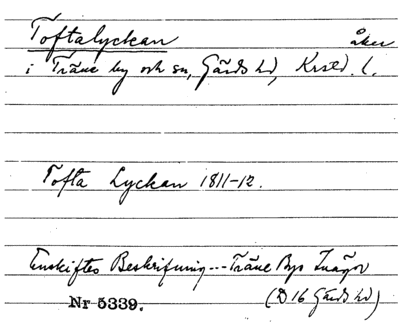 Toftalyckan åker
i Träne by och sn, Gärds hd, Krstd. l.
Tofta Lyckan 1811-12.
Enskiftes Beskrifning --- Träne Bys Inägor
Nr 5339. (D 16 Gärds hd)